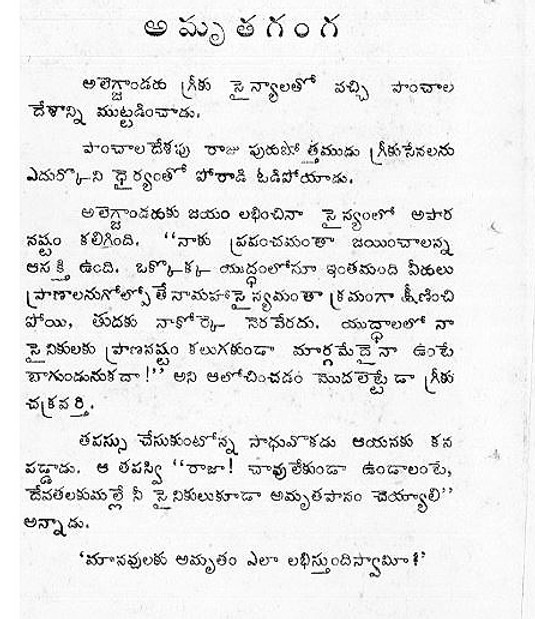 అమృతగంగ
అలెగ్జాండరు గ్రీకు సైన్యాలతో వచ్చి పాంచాల
దేశాన్ని ముట్టడించాడు.
పాంచాలదేశపు రాజు పురుషోత్తముడు గ్రీకుసేనలను
ఎదుర్కొని ధైర్యంతో పోరాడి ఓడిపోయాడు.
అలెగ్జాండరుకు జయం లభించినా సైన్యంలో అపార
నష్టం కలిగింది. ‘‘నాకు ప్రపంచమంతా జయించాలన్న
ఆసక్తి ఉంది. ఒక్కొక్క యుద్ధంలోనూ ఇంతమంది వీరులు
ప్రాణాలనుగోల్పోతే నామహాసైన్యమంతా క్రమంగా క్షీణించి
పోయి, తుదకు నాకోర్కె నెరవేరదు. యుద్ధాలలో నా
సైనికులకు ప్రాణనష్టం కలుగకుండా మార్గమేదైనా ఉంటే
బాగుండునుకదా!’’ అని ఆలోచించడం మొదలెట్టేడా గ్రీకు
చక్రవర్తి.
తపస్సు చేసుకుంటోన్న సాధువొకడు ఆయనకు కన
పడ్డాడు. ఆ తపస్వి ‘‘రాజా! చావులేకుండా ఉండాలంటే,
దేవతలకుమల్లే నీ సైనికులుకూడా అమృతపానం చెయ్యాలి’’
అన్నాడు.
‘మానవులకు అమృతం ఎలా లభిస్తుందిస్వామీ?’